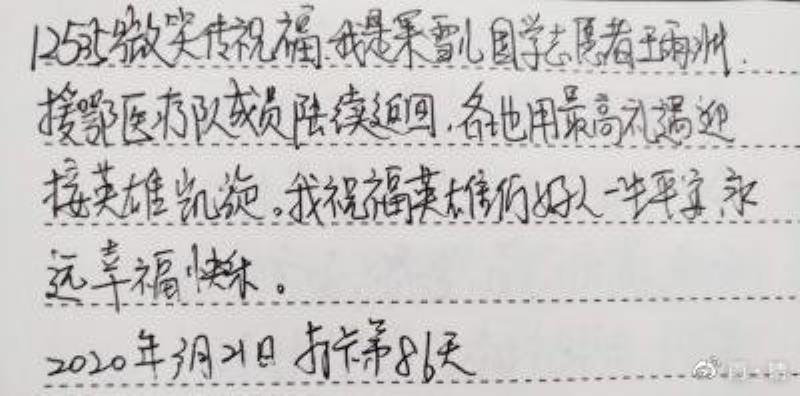 12535微笑传祝福.我是果雪儿国学志愿者王雨洲.
援鄂医疗队成员陆续返回,各地用最高礼遇迎
接英雄凯旋。我祝福英雄们好人一生平安,永
远幸福快乐。
2020年3月21日 打卡第86天